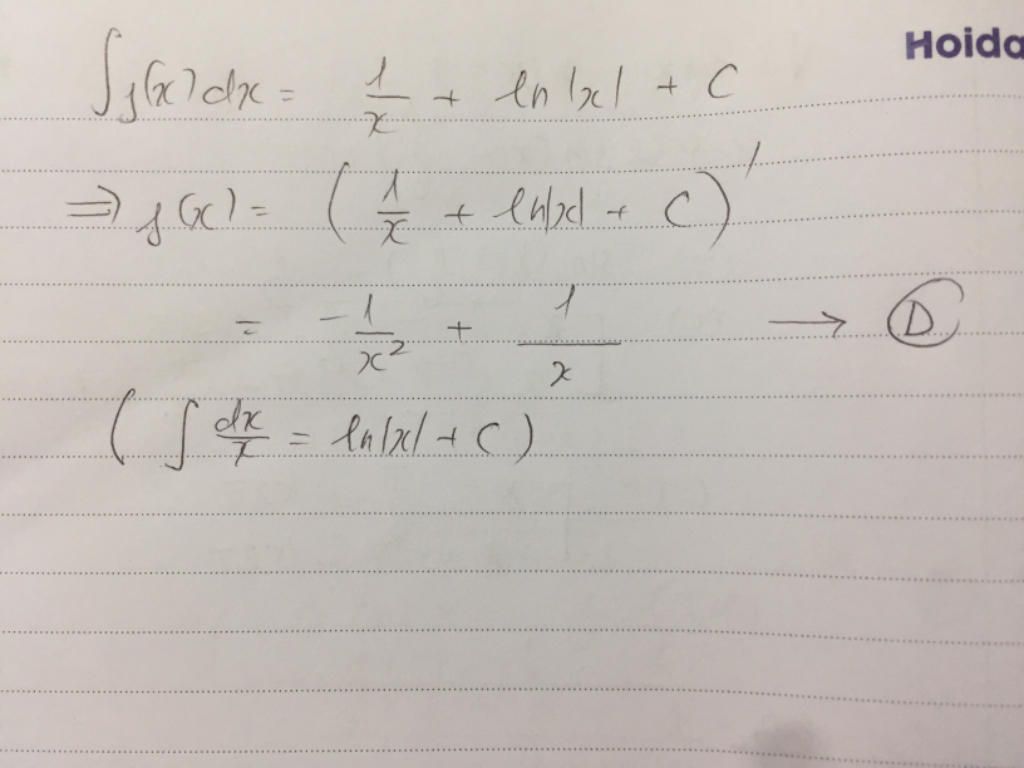 Hoida
∫f(x)dx = 1/x + ln|x| + C
⇒ f(x) = (1/x + ln|x| + C)'
= -1/x² + 1/x → D
(∫dx/x = ln|x| + C)